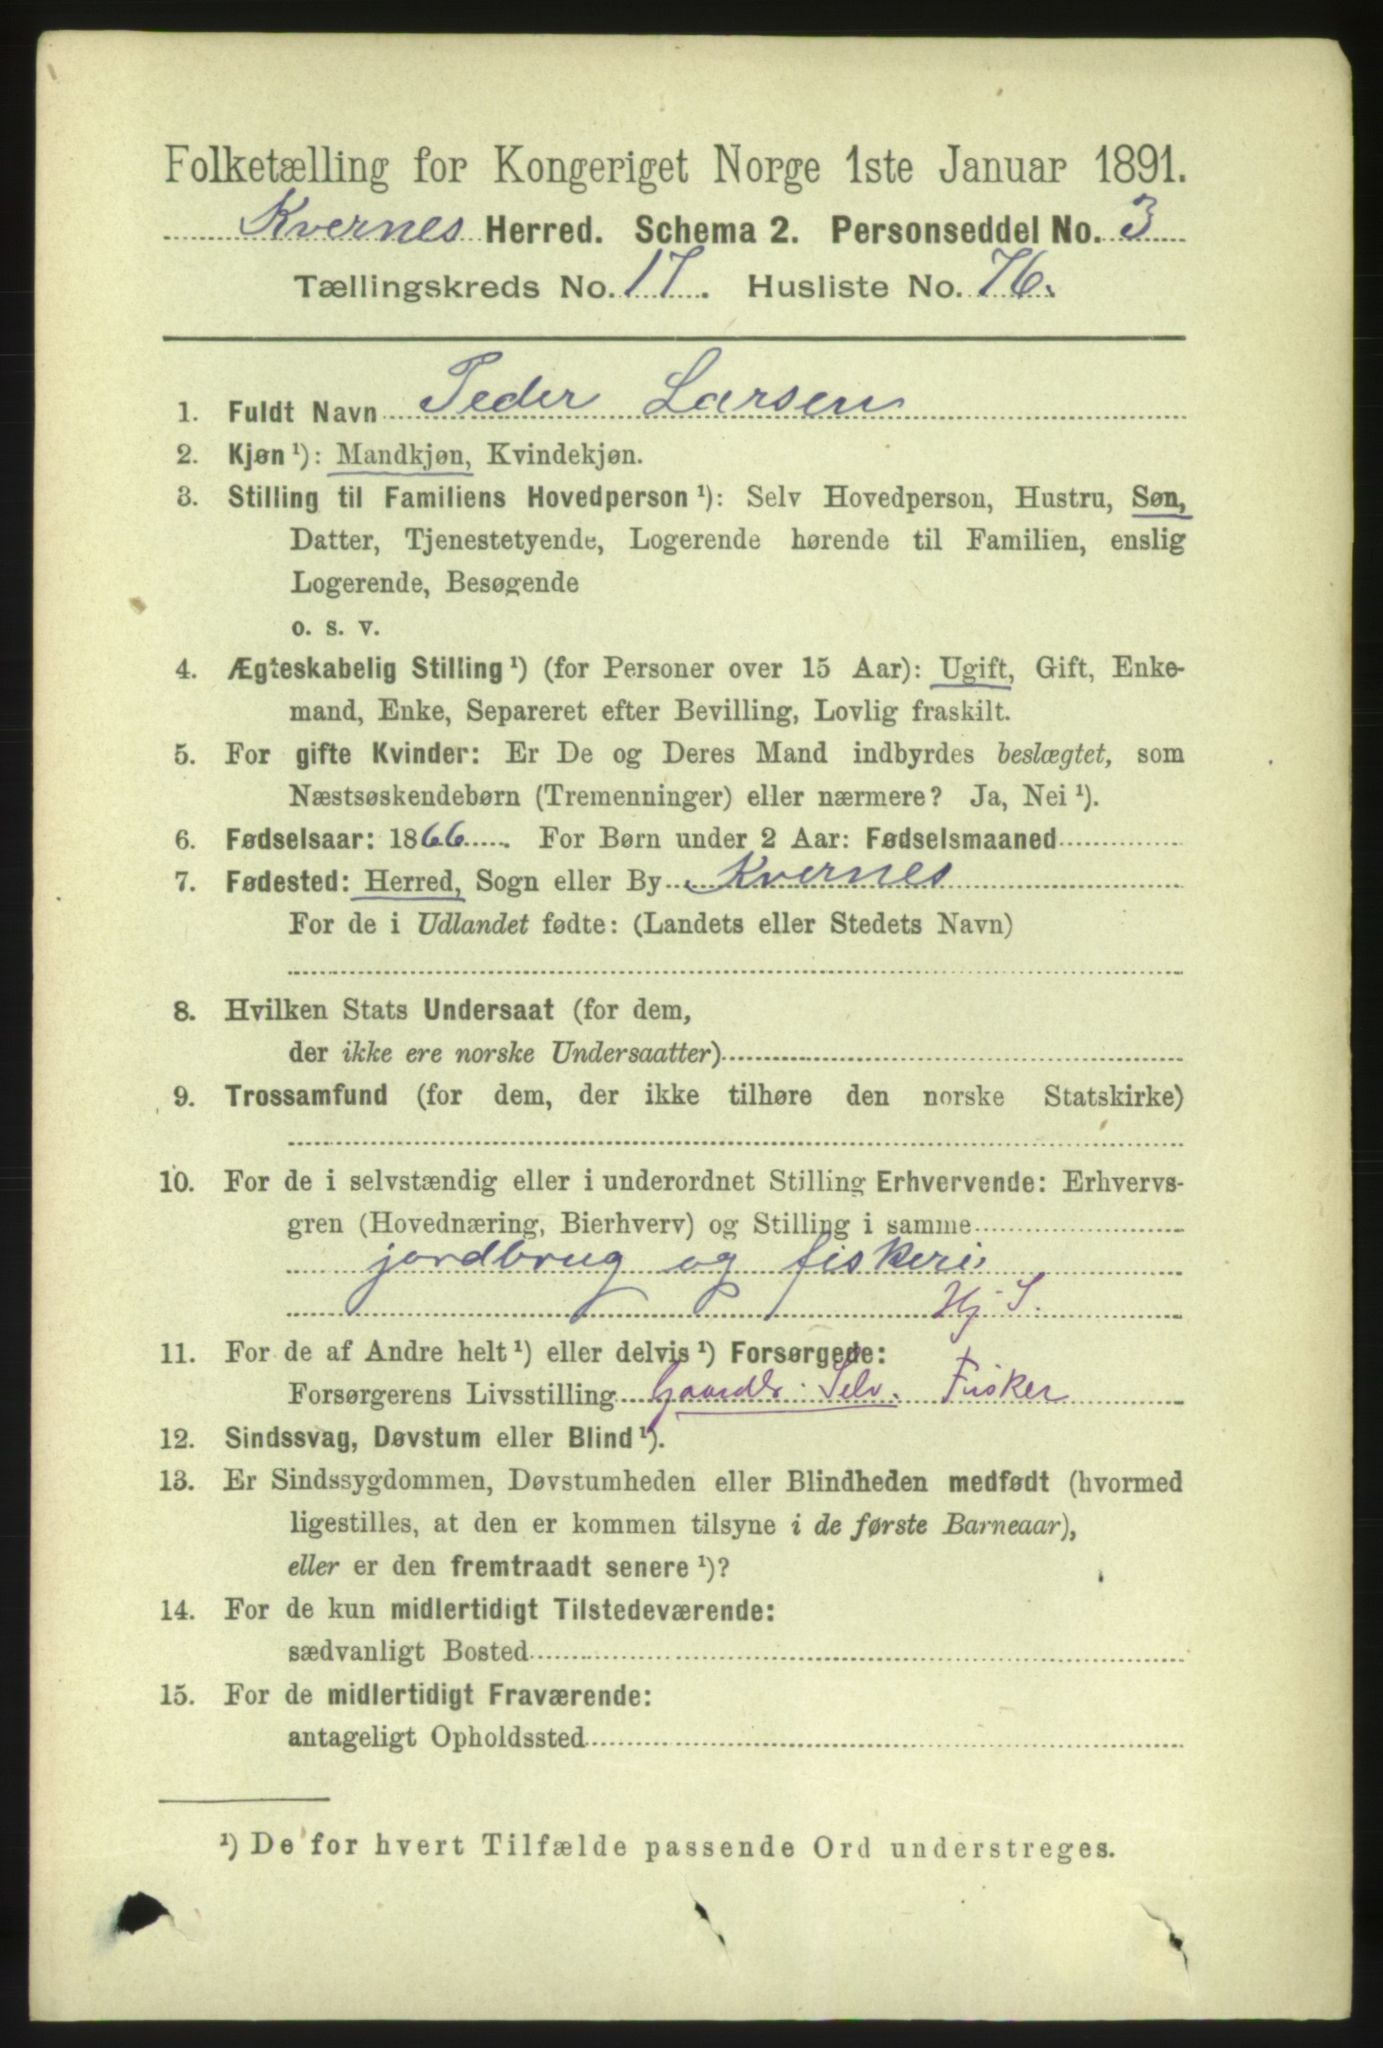 Folketælling for Kongeriget Norge 1ste Januar 1891.
Kvernes Herred. Schema 2. Personseddel No. 3
Tællingskreds No. 17. Husliste No. 76.
1. Fuldt Navn Peder Larsen
2. Kjøn ¹): Mandkjøn, Kvindekjøn.
3. Stilling til Familiens Hovedperson ¹): Selv Hovedperson, Hustru, Søn,
Datter, Tjenestetyende, Logerende hørende til Familien, enslig
Logerende, Besøgende
o. s. v.
4. Ægteskabelig Stilling ¹) (for Personer over 15 Aar): Ugift, Gift, Enke-
mand, Enke, Separeret efter Bevilling, Lovlig fraskilt.
5. For gifte Kvinder: Er De og Deres Mand indbyrdes beslægtet, som
Næstsøskendebørn (Tremenninger) eller nærmere? Ja, Nei ¹).
6. Fødselsaar: 1866. For Børn under 2 Aar: Fødselsmaaned
7. Fødested: Herred, Sogn eller By Kvernes
For de i Udlandet fødte: (Landets eller Stedets Navn)
8. Hvilken Stats Undersaat (for dem,
der ikke ere norske Undersaatter)
9. Trossamfund (for dem, der ikke tilhøre den norske Statskirke)
10. For de i selvstændig eller i underordnet Stilling Erhvervende: Erhvervs-
gren (Hovednæring, Bierhverv) og Stilling i samme
jordbrug og fiskeri
Hj S.
11. For de af Andre helt ¹) eller delvis ¹) Forsørgede:
Forsørgerens Livsstilling Gaardbr. Selv. Fisker
12. Sindssvag, Døvstum eller Blind ¹).
13. Er Sindssygdommen, Døvstumheden eller Blindheden medfødt (hvormed
ligestilles, at den er kommen tilsyne i de første Barneaar),
eller er den fremtraadt senere ¹)?
14. For de kun midlertidigt Tilstedeværende:
sædvanligt Bosted
15. For de midlertidigt Fraværende:
antageligt Opholdssted
¹) De for hvert Tilfælde passende Ord understreges.